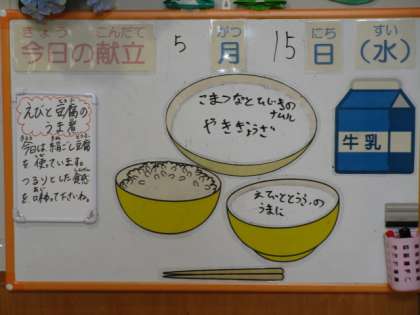 きょう こんだて
今日の献立
5
がつ
月
15
にち
日
すい
(水)
えびと豆腐の
うま煮
今日は絹ごし豆腐
を使っています。
つるりとした食感
を味わって下さいね。
こまつなとひじきの
ナムル
やきぎょうざ
えびととうふの
うまに
牛乳